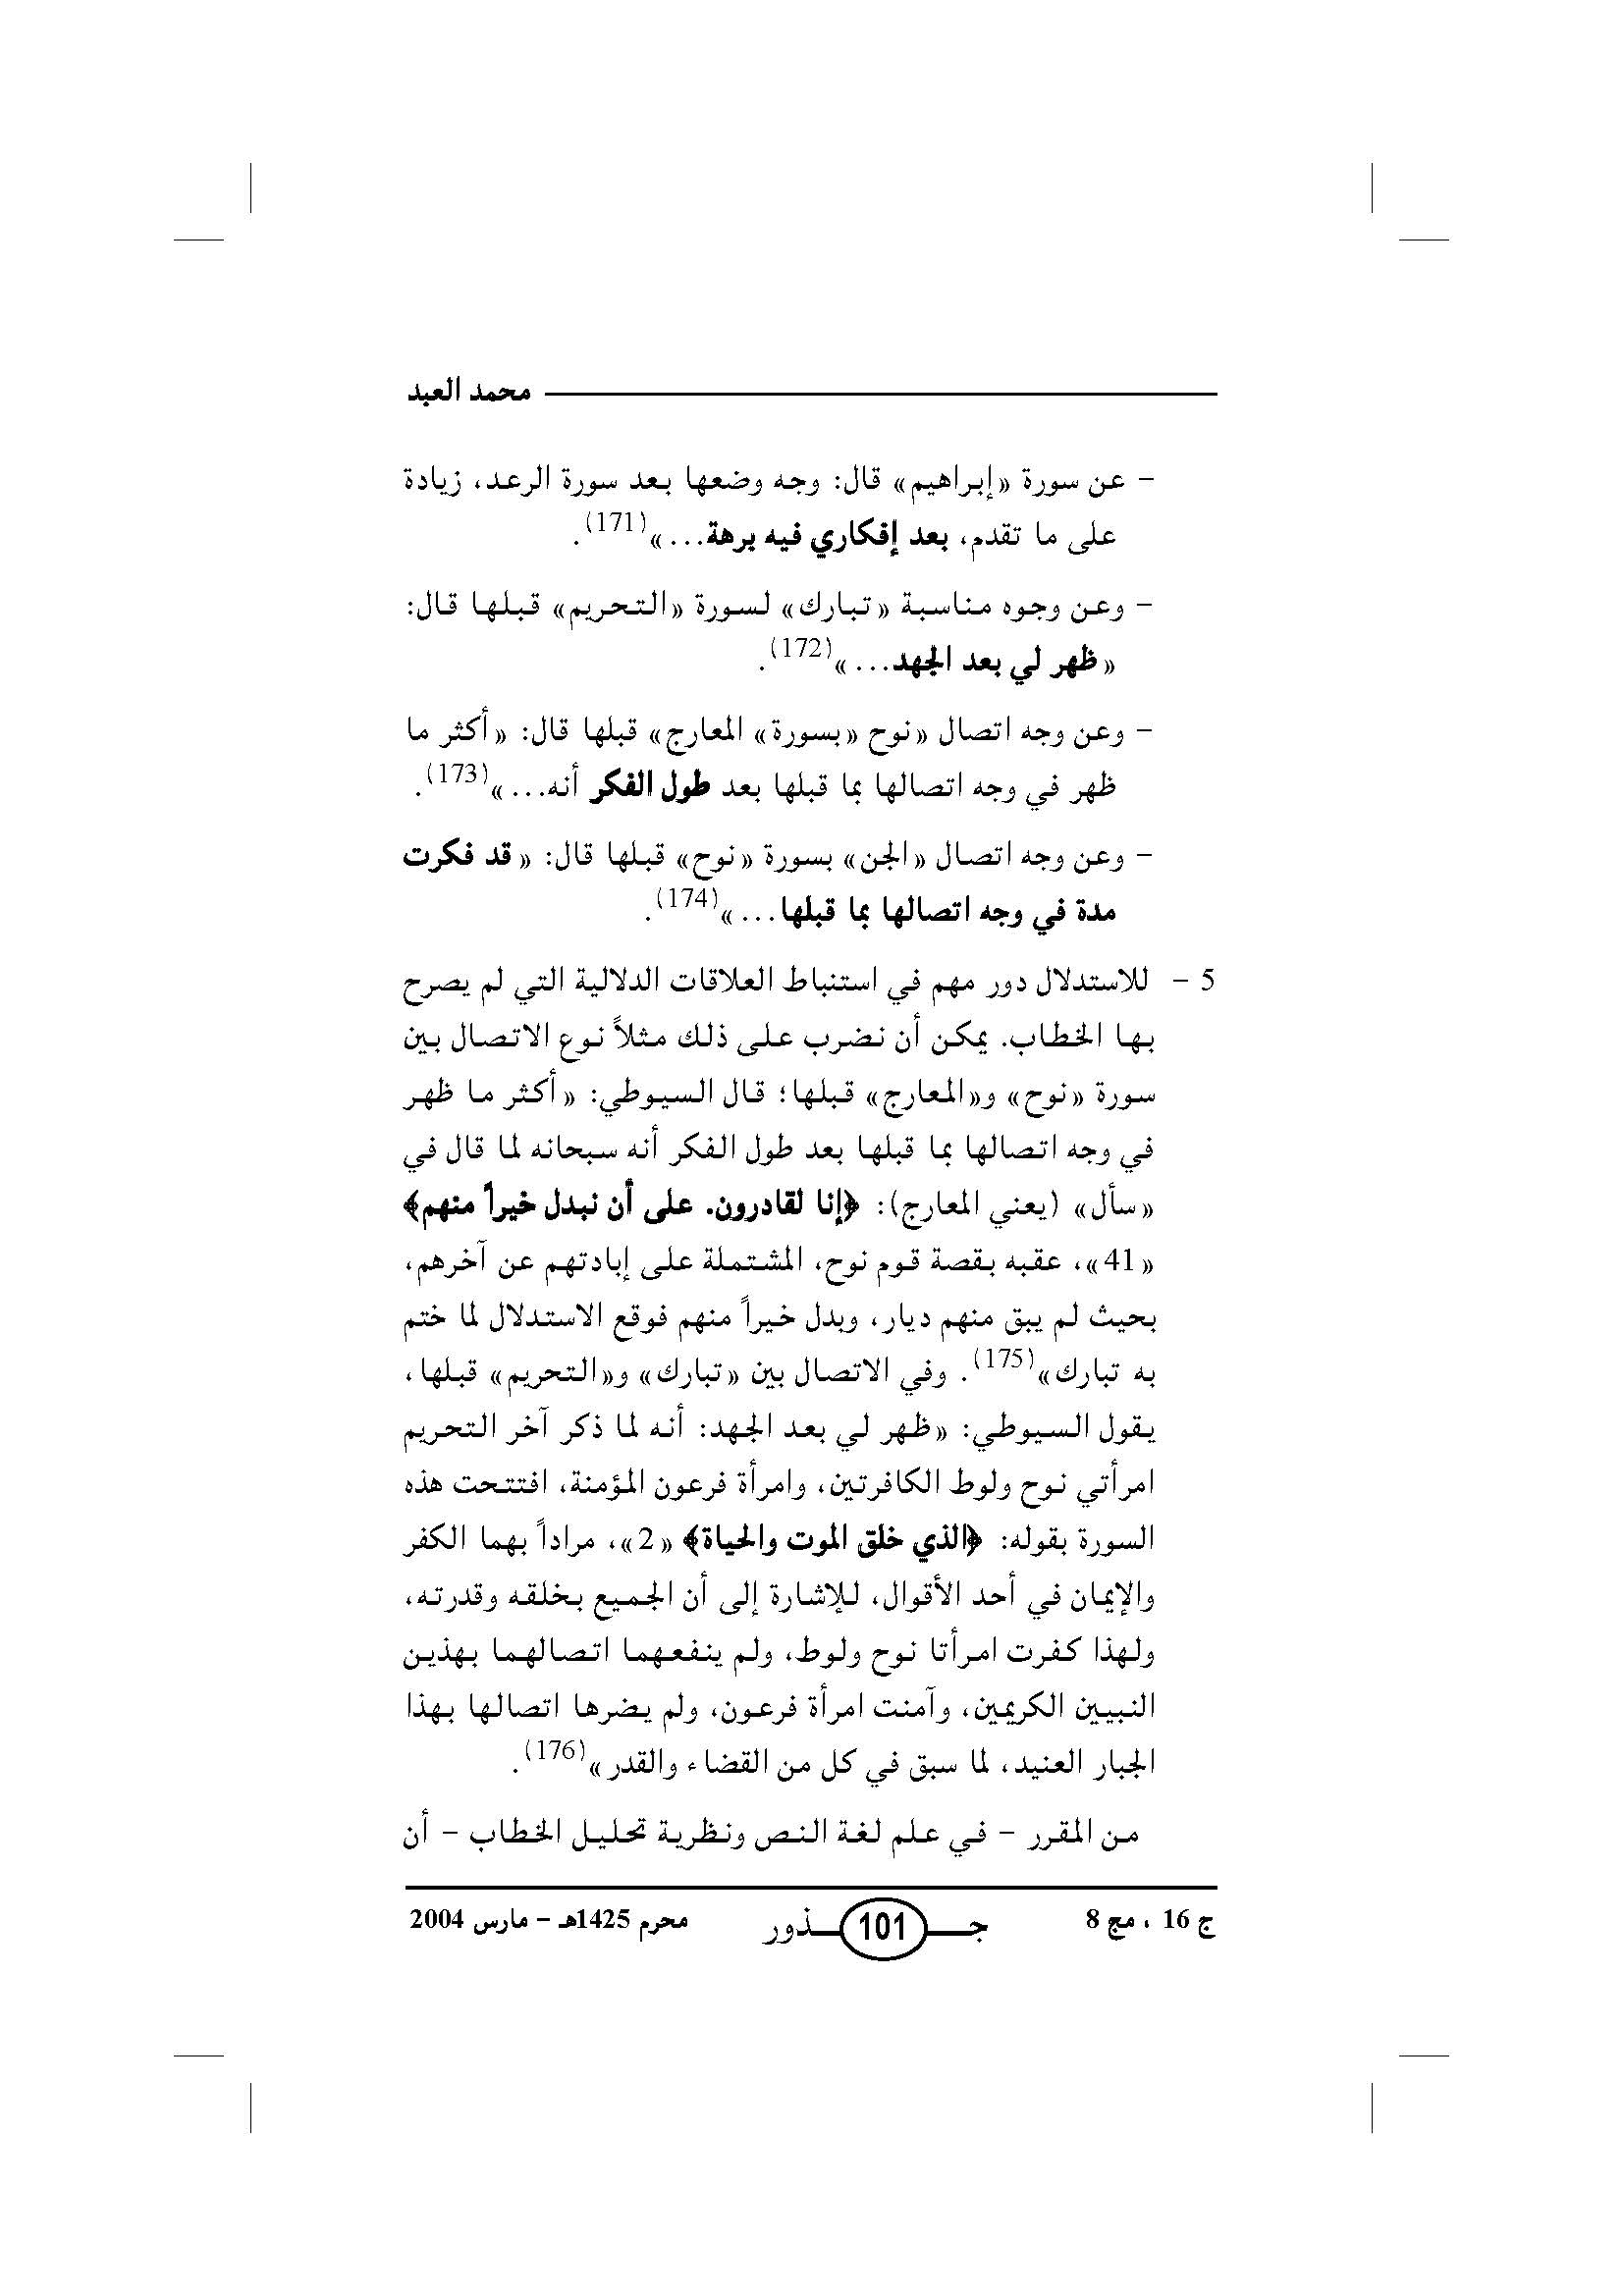 محمد العبد
– عن سورة «إبراهيم» قال: وجه وضعها بعد سورة الرعد، زيادة
على ما تقدم، بعد إفكاري فيه برهة...»(171).
– وعن وجوه مناسبة «تبارك» لسورة «التحريم» قبلها قال:
«ظهر لي بعد الجهد...»(172).
– وعن وجه اتصال «نوح «بسورة» المعارج» قبلها قال: «أكثر ما
ظهر في وجه اتصالها بما قبلها بعد طول الفكر أنه...»(173).
– وعن وجه اتصال «الجن» بسورة «نوح» قبلها قال: «قد فكرت
مدة في وجه اتصالها بما قبلها...»(174).
5 – للاستدلال دور مهم في استنباط العلاقات الدلالية التي لم يصرح
بها الخطاب. يمكن أن نضرب على ذلك مثلاً نوع الاتصال بين
سورة «نوح» و«المعارج» قبلها؛ قال السيوطي: «أكثر ما ظهر
في وجه اتصالها بما قبلها بعد طول الفكر أنه سبحانه لما قال في
«سأل» (يعني المعارج): ﴿إنا لقادرون. على أن نبدل خيراً منهم﴾
«41»، عقبه بقصة قوم نوح، المشتملة على إبادتهم عن آخرهم،
بحيث لم يبق منهم ديار، وبدل خيراً منهم فوقع الاستدلال لما ختم
به تبارك»(175). وفي الاتصال بين «تبارك» و«التحريم» قبلها،
يقول السيوطي: «ظهر لي بعد الجهد: أنه لما ذكر آخر التحريم
امرأتي نوح ولوط الكافرتين، وامرأة فرعون المؤمنة، افتتحت هذه
السورة بقوله: ﴿الذي خلق الموت والحياة﴾ «2»، مراداً بهما الكفر
والإيمان في أحد الأقوال، للإشارة إلى أن الجميع بخلقه وقدرته،
ولهذا كفرت امرأتا نوح ولوط، ولم ينفعهما اتصالهما بهذين
النبيين الكريمين، وآمنت امرأة فرعون، ولم يضرها اتصالها بهذا
الجبار العنيد، لما سبق في كل من القضاء والقدر»(176).
من المقرر – في علم لغة النص ونظرية تحليل الخطاب – أن
ج 16 ، مج 8 جـ 101 ـذور محرم 1425هـ – مارس 2004